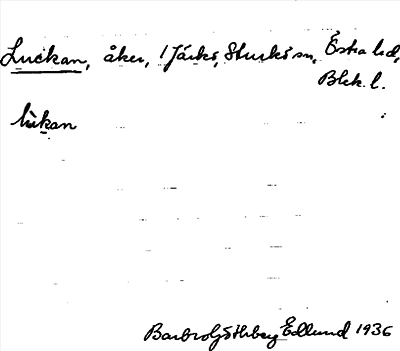 Luckan, åker, 1 Järkö, Sturkö sn, Östra hd,
Blek. l.
lùkan
Barbro Götherberg Edlund 1936